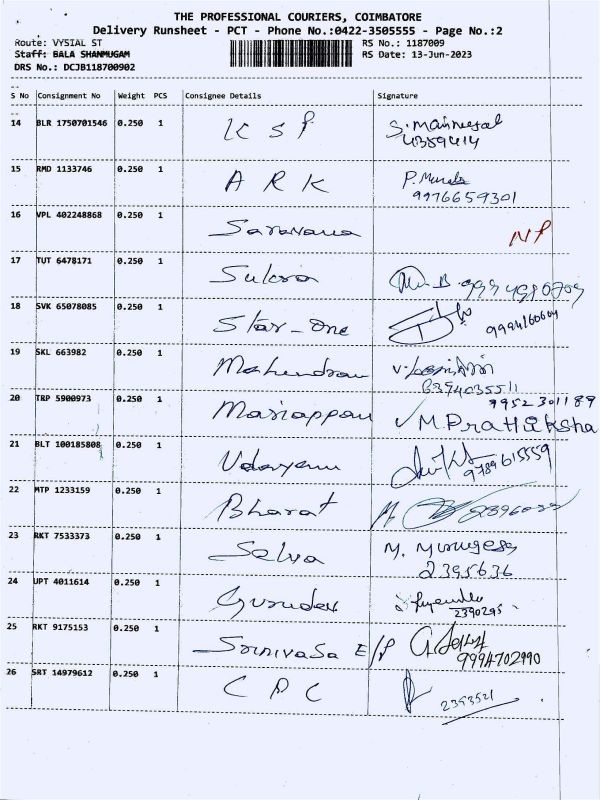 THE PROFESSIONAL COURIERS, COIMBATORE
Delivery Runsheet - PCT - Phone No.:0422-3505555 - Page No.:2
Route: VYSIAL ST RS No.: 1187009
Staff: BALA SHANMUGAM RS Date: 13-Jun-2023
DRS No.: DCJB118700902
S No Consignment No Weight PCS Consignee Details Signature
14 BLR 1750701546 0.250 1 K S P
4359414
15 RMD 1133746 0.250 1 A R K P.
9976659301
16 VPL 402248868 0.250 1 Saravana NP
17 TUT 6478171 0.250 1 Suksra
18 SVK 65078085 0.250 1 Star-one 9994160604
19 SKL 663982 0.250 1 Mahendran
8394035511
20 TRP 5900973 0.250 1 Mariappan 9952301189
M.Prathiksha
21 BLT 100185808 0.250 1 Udayam 9789615559
22 MTP 1233159 0.250 1 Bharat
23 RKT 7533373 0.250 1 Selva M. Murugesa
2395636
24 UPT 4011614 0.250 1 Gurudev
2390295
25 RKT 9175153 0.250 1 Srinivasa E/P
9994702990
26 SRT 14979612 0.250 1 C P C 2393521